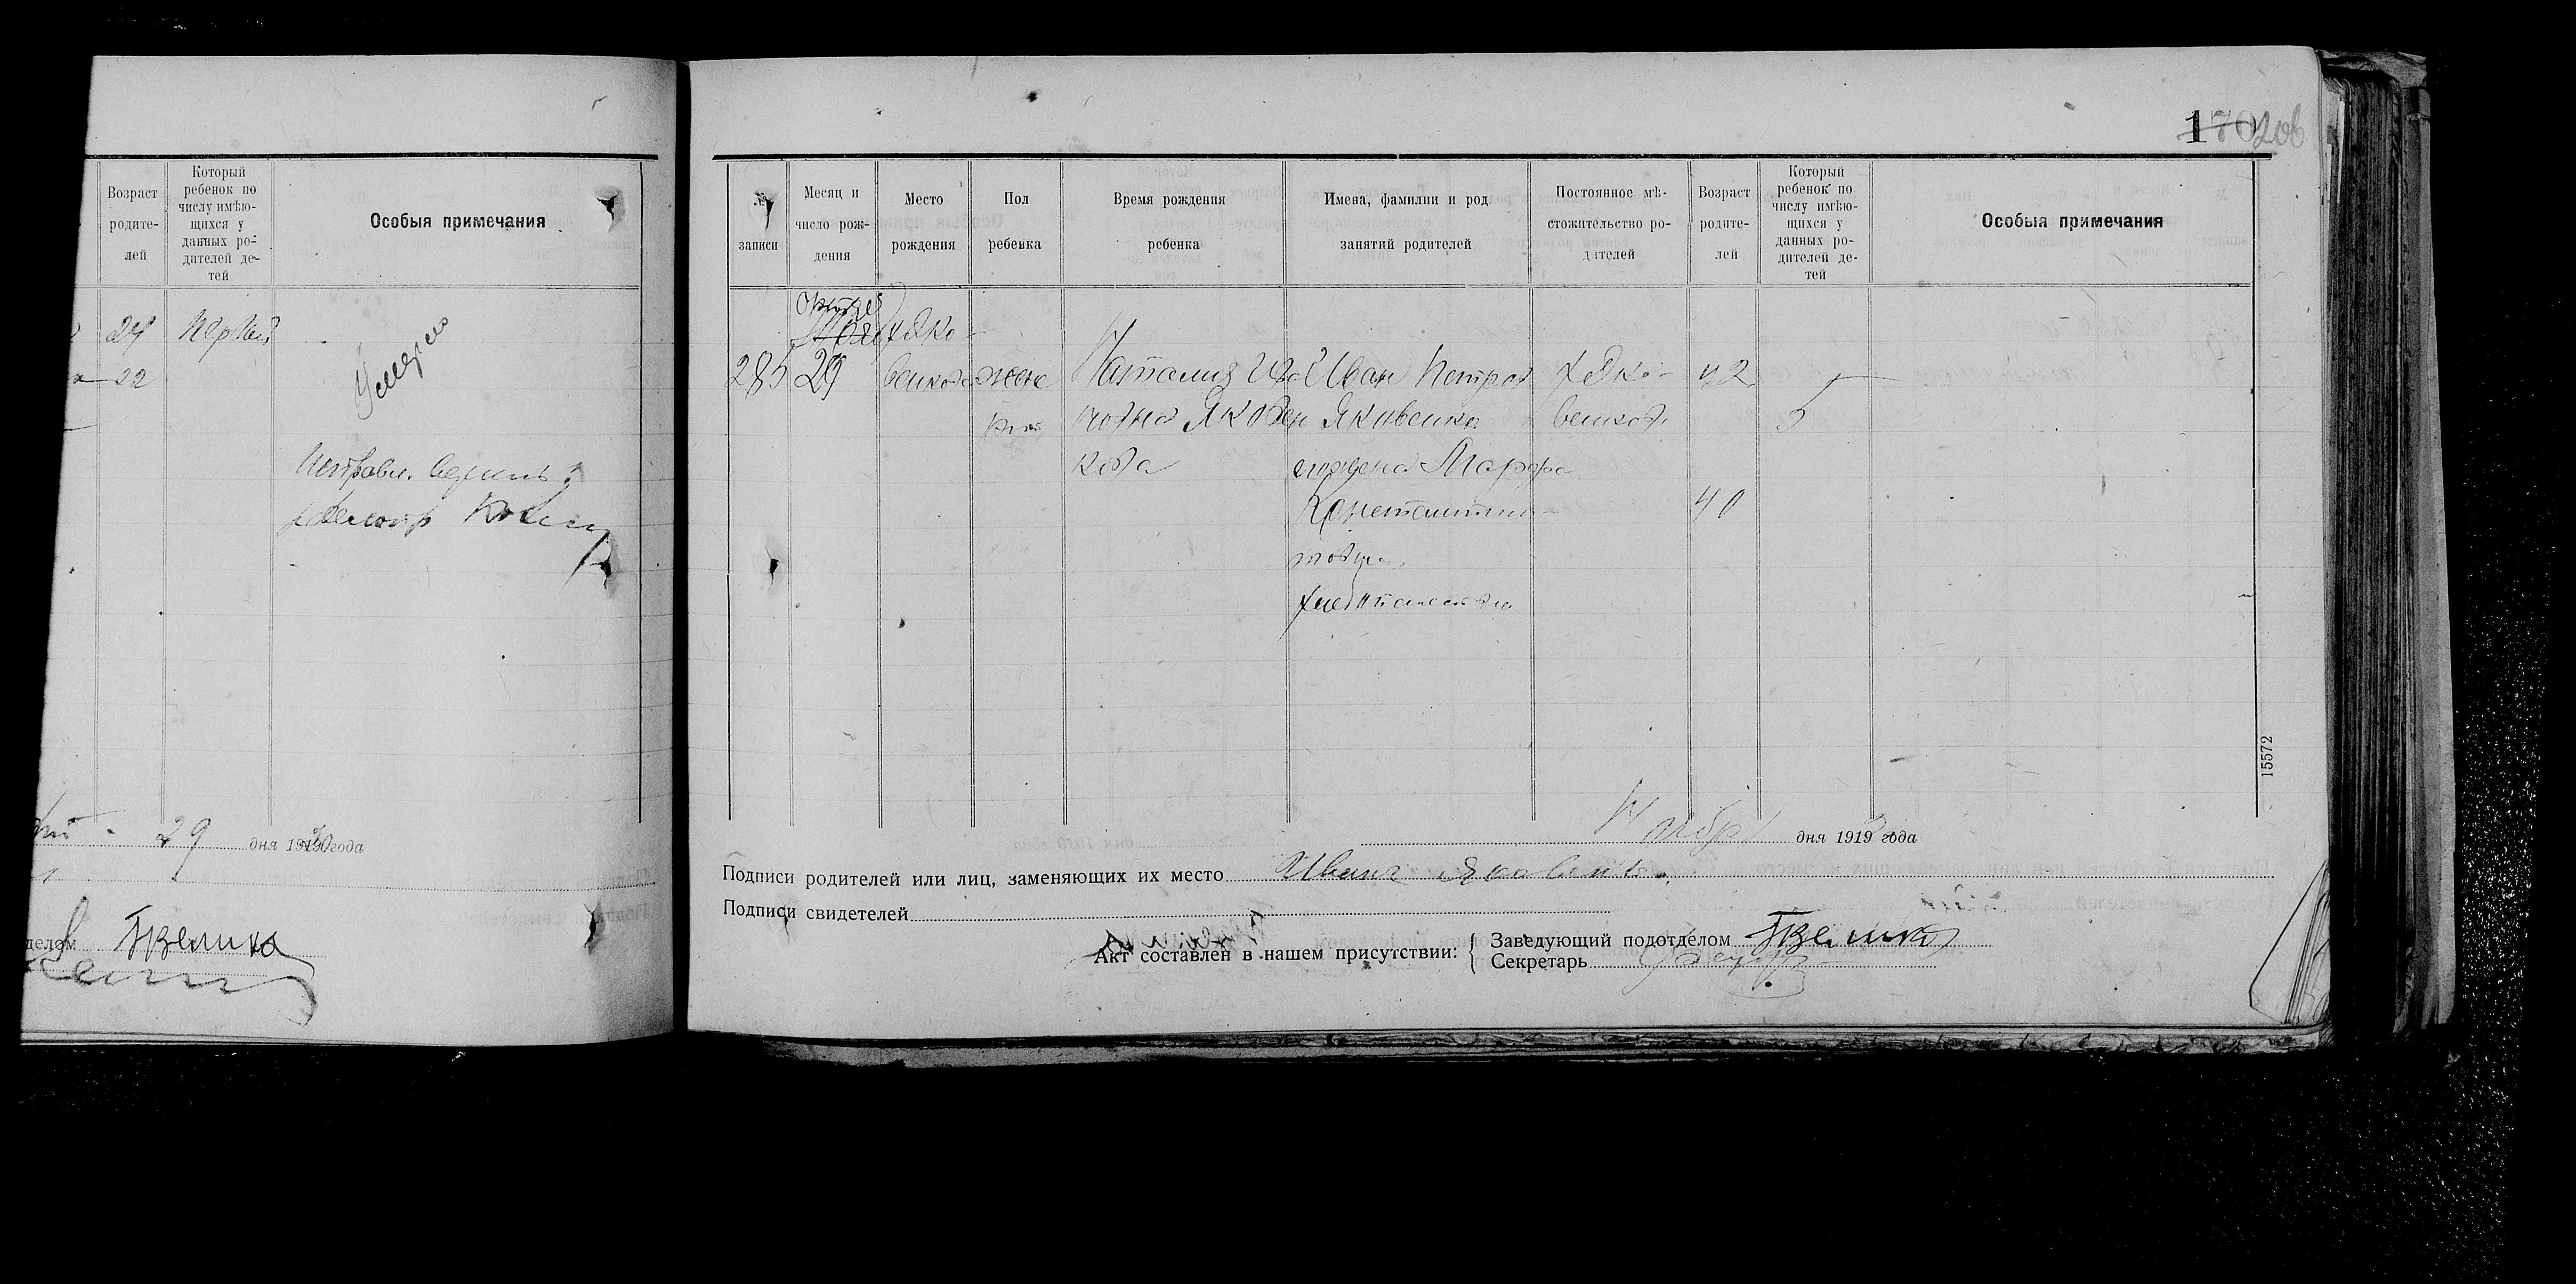 170 206
Возраст
родите-
лей
Который
ребенок по
числу имѣю-
щихся у
данных ро-
дителей де-
тей
Особыя примечания
24 Первый
22
Умерло
29 дня 1920 года
делом
№
записи
Месяц и
число рож-
дения
Место
рождения
Пол
ребенка
Время рождения
ребенка
Имена, фамилии и род
занятий родителей
Постоянное мѣ-
стожительство ро-
дителей
Возраст
родите-
лей
Который
ребенок по
числу имѣю-
щихся у
данных ро-
дителей де-
тей
Особыя примечания
х Яко-
285 29 венков женс Наталия Ива Иван Петров х Яко- 42
кий новна Яковен Яковенко венков 5
кова Марфа
Константи- 40
нова
хлебопашество
15572
Ноябр дня 1919 года
Подписи родителей или лиц, заменяющих их место Иван Яковенко
Подписи свидетелей
Акт составлен в нашем присутствии:
Заведующий подотделом
Секретарь